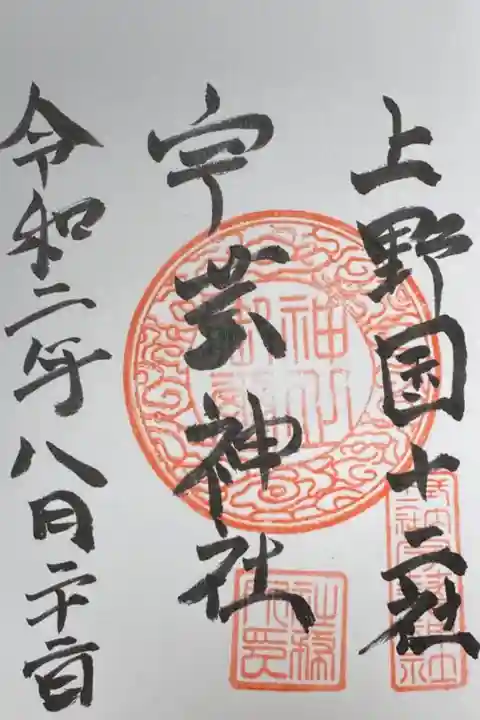 上野国十二社
宇芸神社
令和二年八月二十二日